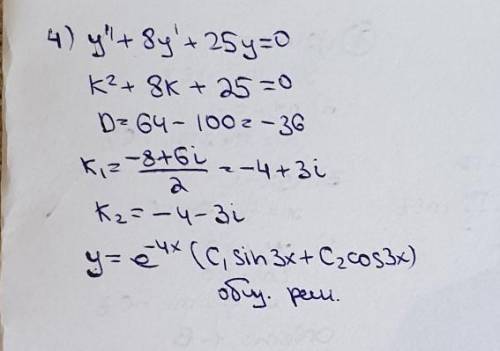 4) y'' + 8y' + 25y = 0
k² + 8k + 25 = 0
D = 64 - 100 = -36
k₁ = (-8+6i)/2 = -4 + 3i
k₂ = -4 - 3i
y = e^(-4x) (C₁ sin3x + C₂ cos3x)
общ. реш.